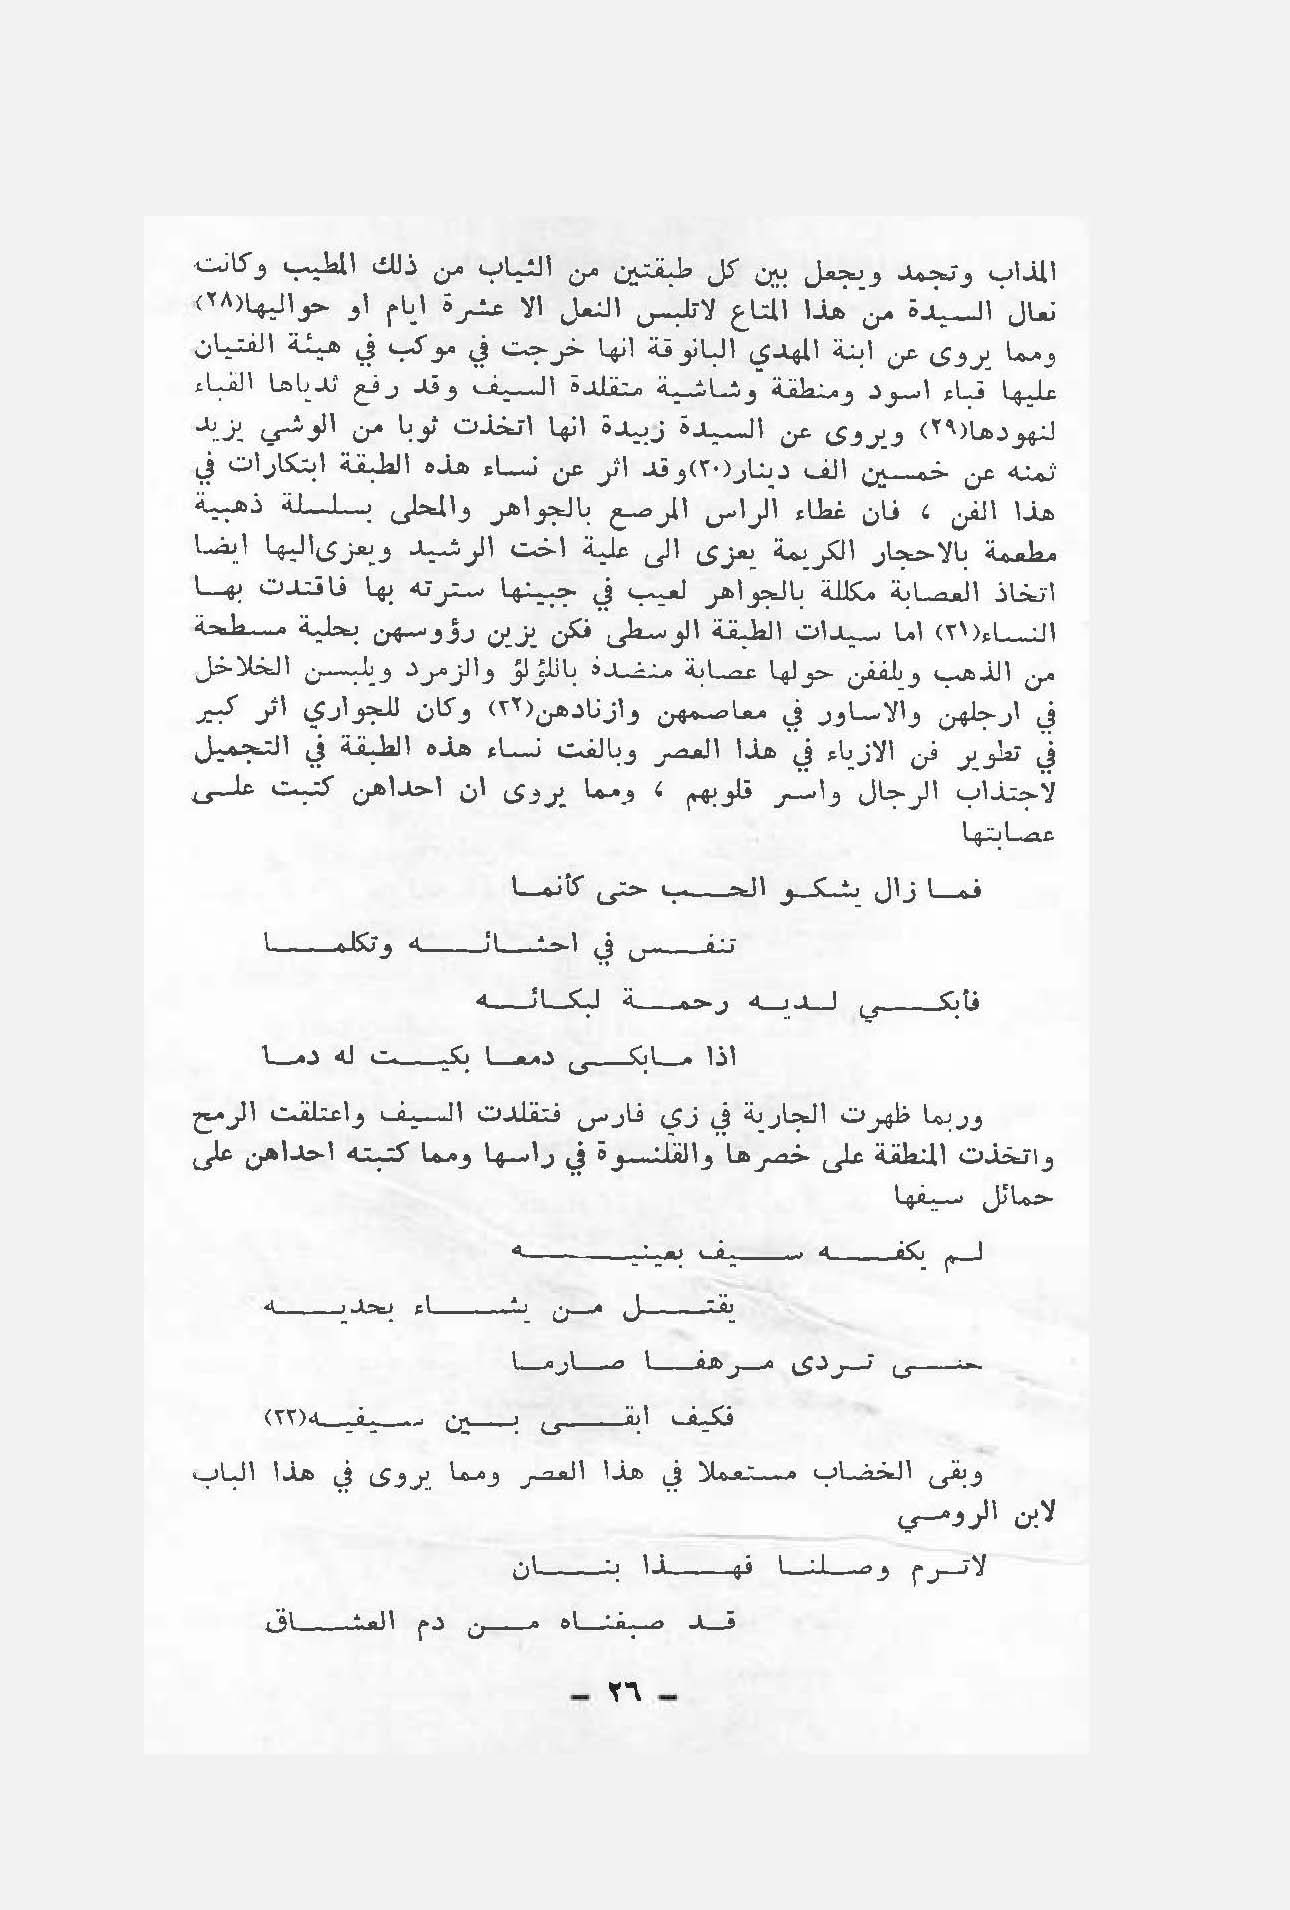 المذاب وتجمد ويجعل بين كل طبقتين من الثياب من ذلك المطيب وكانت
نعال السيدة من هذا المتاع لاتلبس النعل الا عشرة ايام او حواليها(٢٨)
ومما يروى عن ابنة المهدي البانوقة انها خرجت في موكب في هيئة الفتيان
عليها قباء اسود ومنطقة وشاشية متقلدة السيف وقد رفع ثدياها القباء
لنهودها(٢٩) ويروى عن السيدة زبيدة انها اتخذت ثوبا من الوشي يزيد
ثمنه عن خمسين الف دينار(٣٠)وقد اثر عن نساء هذه الطبقة ابتكارات في
هذا الفن ، فان غطاء الراس المرصع بالجواهر والمحلى بسلسلة ذهبية
مطعمة بالاحجار الكريمة يعزى الى علية اخت الرشيد ويعزى اليها ايضا
اتخاذ العصابة مكللة بالجواهر لعيب في جبينها سترته بها فاقتدت بهـا
النساء(٣١) اما سيدات الطبقة الوسطى فكن يزين رؤوسهن بحلية مسطحة
من الذهب ويلففن حولها عصابة منضدة باللؤلؤ والزمرد ويلبسن الخلاخل
في ارجلهن والاساور في معاصمهن وازنادهن(٣٢) وكان للجواري اثر كبير
في تطوير فن الازياء في هذا العصر وبالغت نساء هذه الطبقة في التجميل
لاجتذاب الرجال واسر قلوبهم ، ومما يروى ان احداهن كتبت علـى
عصابتها
فمـا زال يشكـو الحـب حتى كأنمـا
تنفـس في احشـائـه وتكلمـا
فأبكـي لـديـه رحمـة لبكـائـه
اذا مـابكـى دمعـا بكيـت له دمـا
وربما ظهرت الجارية في زي فارس فتقلدت السيف واعتلقت الرمح
واتخذت المنطقة على خصرها والقلنسوة في راسها ومما كتبته احداهن على
حمائل سيفها
لـم يكفـه سـيف بعينيـه
يقتـل مـن يشـاء بحديـه
حتـى تـردى مـرهفـا صـارمـا
فكيف ابقـى بـين سـيفيـه(٣٣)
وبقى الخضاب مستعملا في هذا العصر ومما يروى في هذا الباب
لابن الرومـي
لاتـرم وصـلنـا فهـذا بنـان
قـد صبغنـاه مـن دم العشـاق
– ٢٦ –